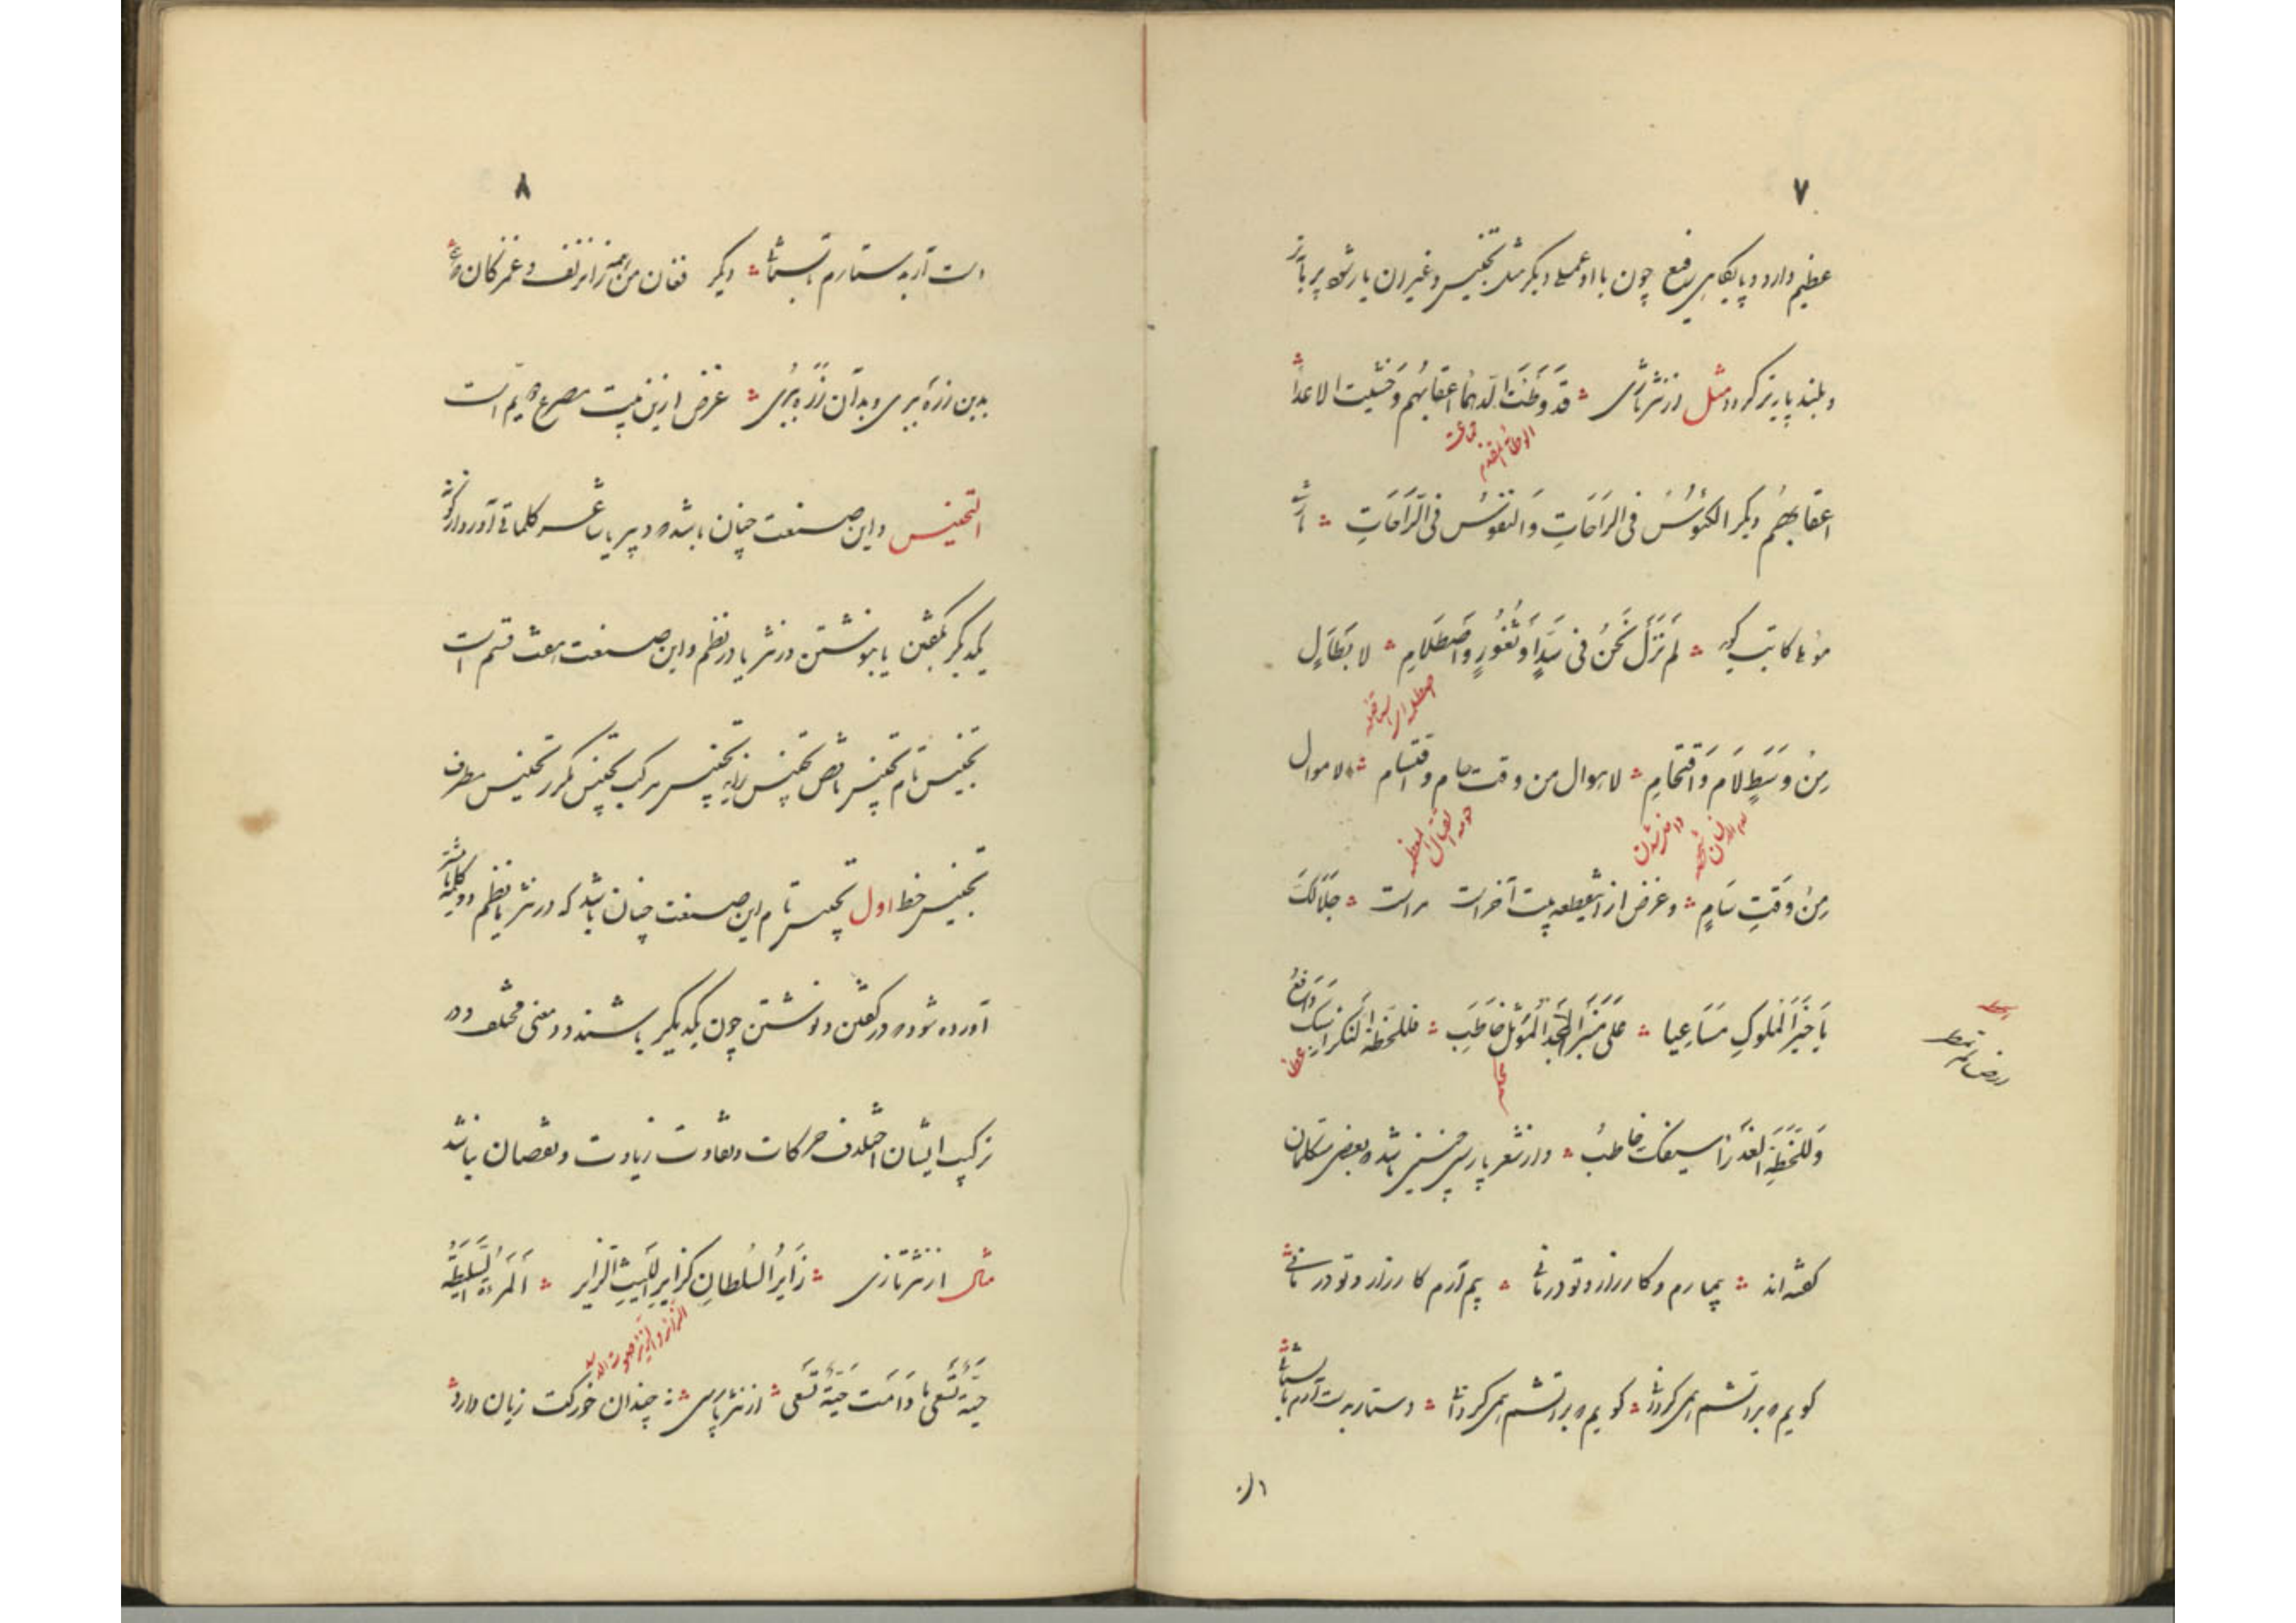 ٧
عظیم دارد و پایگاهی رفیع چون با او عملی دیگر مثل تجنیس و غیر آن یار شود پر بارتر
و بلند پایه تر گردد مثل از نثر تازی قَد وَطِئَت الدَهماءُ اعقابهُم وَ خشیت الاعداءُ
اعقابهُم دیگر الکئوسُ فی الرَاحَاتِ وَ النفوسُ فی الرَاحَاتِ
مؤید کاتب گوید لَم نَزَل نَحنُ فی سَدادِ ثُغُورٍ وَ اصطَلامِ لابطَالٍ
مِن وَسَطِ لَامِ وَ اقتحَامِ لاهوال من وقت حام و اقتسام لاموال
مِن وَقتِ سَامٍ و غرض ازین قطعه بیت آخر است مراست جَلَالکَ
یَا خَیرَ المُلوکِ مَسَاعِیا عَلی مِنبَرِ المَجدِ المُؤَثّلِ خَاطِب فللخُطَّة النکراء سیبک دَافعُ
وَ للخُطَّةِ العَذراء سیفک خاطبُ و از شعر پارسی چنین باشد و بعضی متکلمان
گفته اند بیمارم و کار زار و تو درمانی بیم آرم کارزار و تو درمانی
گویم که بر آتشم همی گردانی گویم که بر آتشم همی گردانی دستار بدست آرم بستانی
٨
دست آر به ستارم بستانی دیگر فغان من همه زان زلف و غمزگان که همی
بدین زره ببری و بدان زره ببری غرض ازین بیت مصرع دویم است
التجنیس و این صنعت چنان باشد که دبیر یا شاعر کلماتی آورد مانند
یکدیگر بگفتن یا بنوشتن در نثر یا در نظم و این صنعت هفت قسم است
تجنیس تام تجنیس ناقص تجنیس زاید تجنیس مرکب تجنیس مکرر تجنیس مطرف
تجنیس خط اول تجنیس تام این صنعت چنان باشد که در نثر یا نظم دو کلمه یا بیشتر
آورده شود که در گفتن و نوشتن چون یکدیگر باشند و در معنی مختلف و در
ترکیب ایشان اختلاف حرکات و تفاوت زیادت و نقصان نباشد
مثال از نثر تازی زَایرُ السُلطانِ کزَایرِ اللَیثِ الزایر المراة السَلیطَة
حَیَّة تَسعَی مَا دَامَت حَیَّة تَسعَی از نثر پارسی چندان خورکت زیان دارد